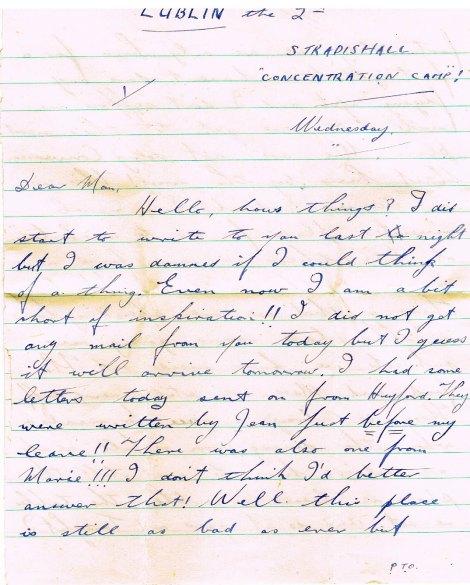 LUBLIN the 2-
STRADISHALL
"CONCENTRATION CAMP"!
1/
Wednesday.
Dear Mom,
Hello, hows things? I did
start to write to you last night
but I was damned if I could think
of a thing. Even now I am a bit
short of inspiration!! I did not get
any mail from you today but I guess
it will arrive tomorrow. I had some
letters today sent on from Heyford. They
were written by Jean just before my
leave!! There was also one from
Marie!!! I don't think I'd better
answer that! Well this place
is still as bad as ever but
P.T.O.